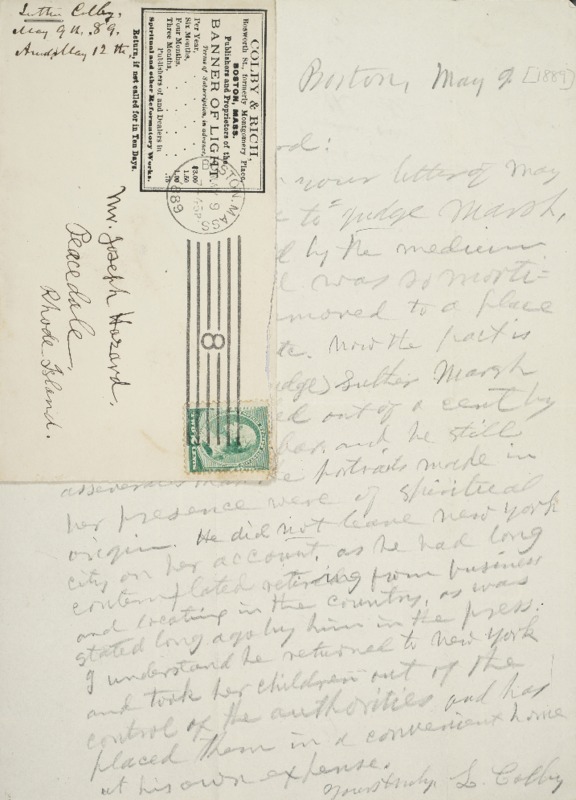 Luther Colby,
May 9th. 89.
Ansd May 12th.
COLBY & RICH,
Bosworth St., formerly Montgomery Place,
BOSTON, MASS.
Publishers and Proprietors of the
BANNER OF LIGHT.
Terms of Subscription, in advance:
Per Year, $3.00
Six Months, 1.50
Four Months, 1.00
Three Months,
Publishers of and Dealers in
Spiritual and other Reformatory Works.
Return, if not called for in Ten Days.
BOSTON, MA
MAY 9
1889
8
TWO CENTS
Mr. Joseph Hazard,
Peacedale,
Rhode Island.
Boston, May 9 [1889]
rd:
your letter of May
to Judge Marsh,
by the medium
was so morti-
moved to a place
etc. Now the fact is
udge) Luther Marsh
ed out of a cent by
and he still
asseverates that the portraits made in
her presence were of spiritual
origin. He did not leave New York
city on her account, as he had long
contemplated retiring from business
and locating in the country, as was
stated long ago by him in the press.
I understand he returned to New York
and took her children out of the
control of the authorities, and has
placed them in a convenient home
at his own expense.
Yours truly L. Colby